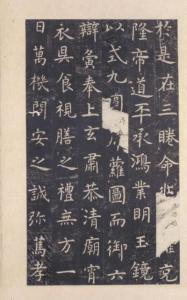 於是在三睠命
克
隆帝道丕承鴻業明玉鏡
以式九圍蘿圖而御六
辯寅奉上玄肅恭清廟宵
衣昃食視膳之禮無方一
日萬機問安之誠彌篤孝